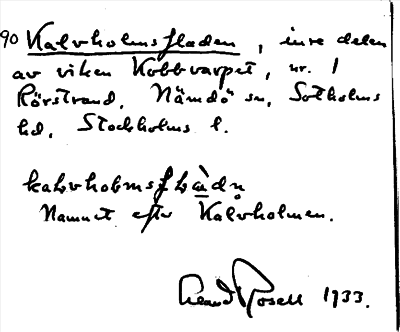 90 Kalvholmsfladen, inre delen
av viken Kobbvarpet, nr. 1
Rörstrand, Nämdö sn, Sotholms
hd, Stockholms l.
kalvholmsflàdn
Namnet efter Kalvholmen.
Rosell 1933.